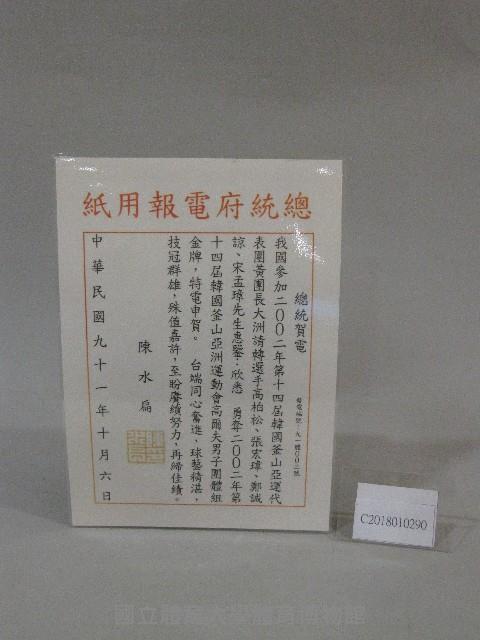 總統府電報用紙
總統賀電
發電編號：九一體００三號
我國參加二００二年第十四屆韓國釜山亞運代
表團黃團長大洲請轉選手高柏松、張宏瑋、鄭誠
諒、宋孟璋先生惠鑒：欣悉　勇奪二００二年第
十四屆韓國釜山亞洲運動會高爾夫男子團體組
金牌，特電申賀。　台端同心奮進，球藝精湛，
技冠群雄，殊值嘉許，至盼賡續努力，再締佳績。
陳水扁
中華民國九十一年十月六日
C2018010290
國立體育大學體育博物館